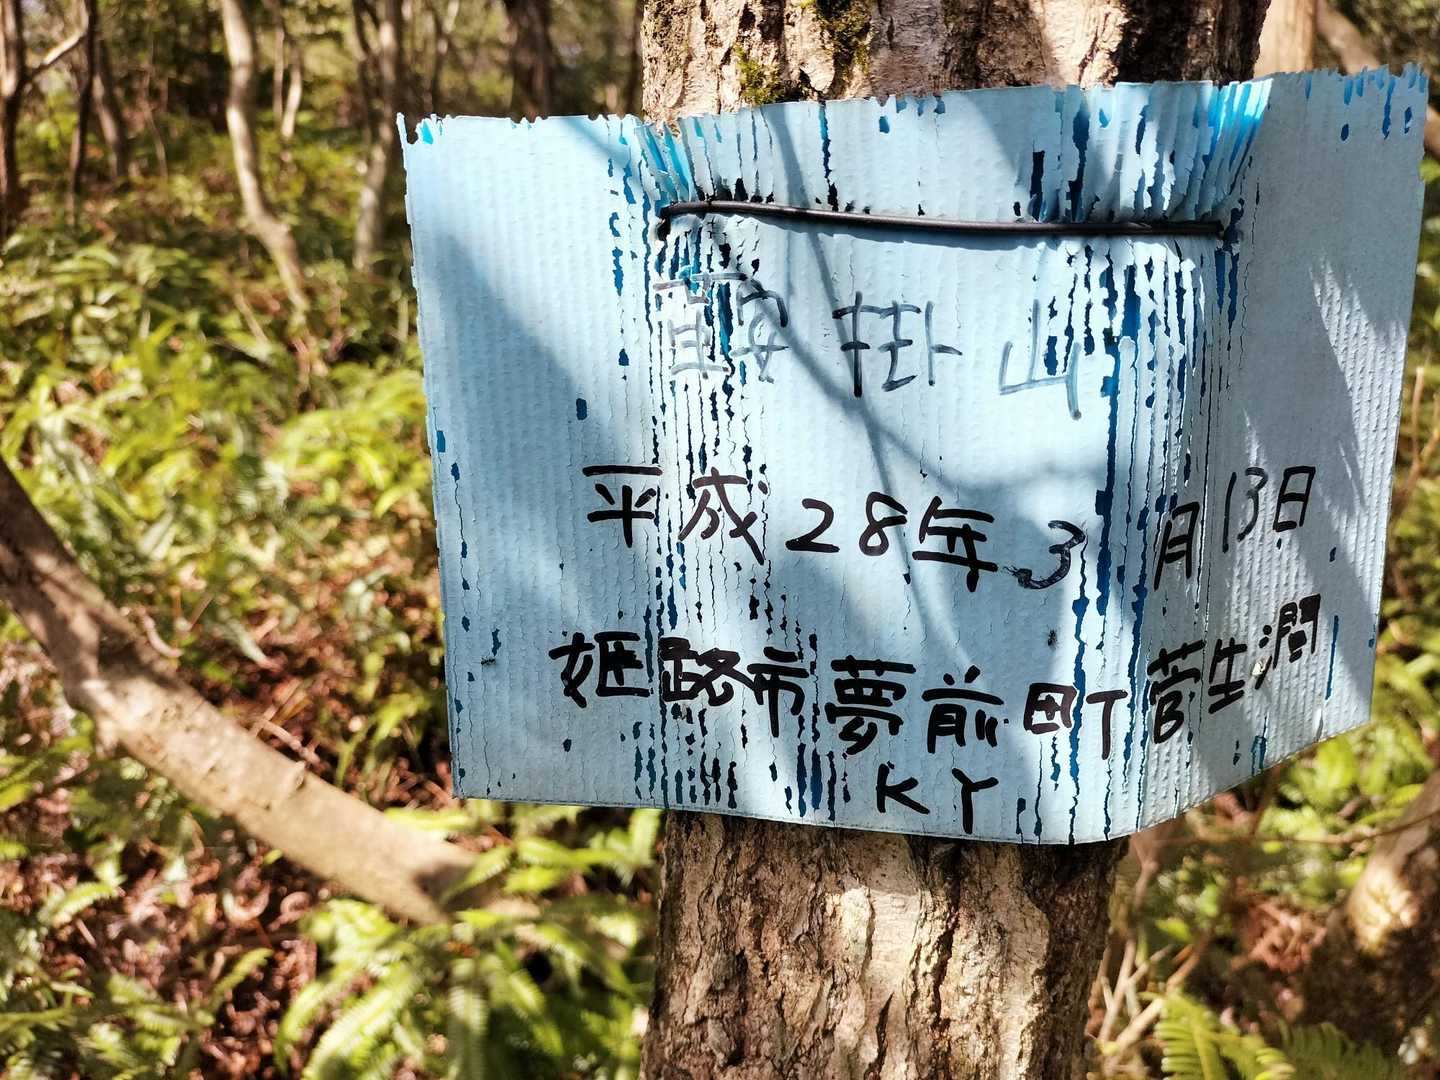 鞍掛山
平成28年3月13日
姫路市夢前町菅生澗
KY